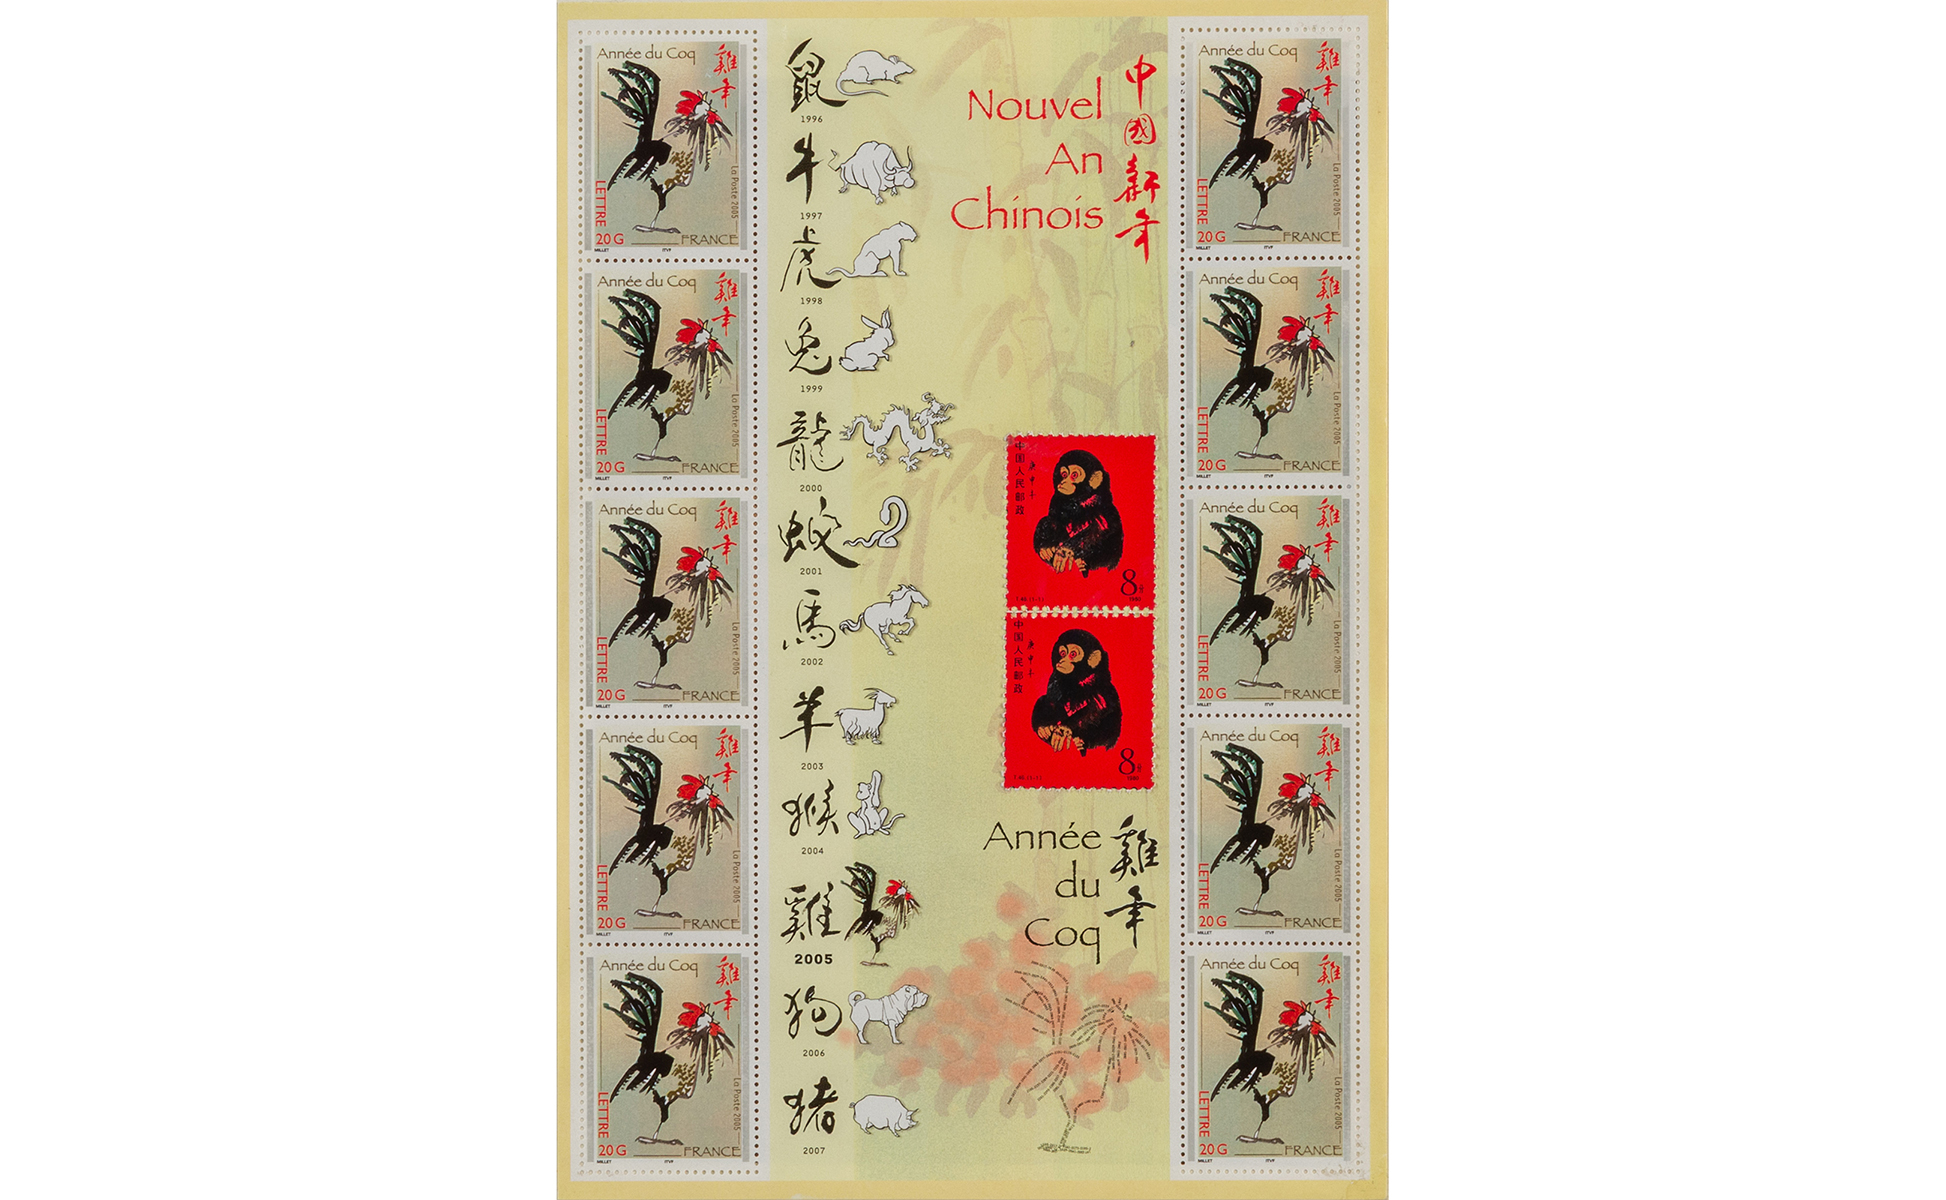 Année du Coq
雞年
La Poste 2005
LETTRE
20 G
FRANCE
MILLET
ITVF
Année du Coq
雞年
La Poste 2005
LETTRE
20 G
FRANCE
MILLET
ITVF
Année du Coq
雞年
La Poste 2005
LETTRE
20 G
FRANCE
MILLET
ITVF
Année du Coq
雞年
La Poste 2005
LETTRE
20 G
FRANCE
MILLET
ITVF
Année du Coq
雞年
La Poste 2005
LETTRE
20 G
FRANCE
MILLET
ITVF
鼠
1996
牛
1997
虎
1998
兔
1999
龍
2000
蛇
2001
馬
2002
羊
2003
猴
2004
雞
2005
狗
2006
猪
2007
Nouvel
An
Chinois
中國新年
中国人民邮政
庚申年
8分
T.46.(1-1)
1980
中国人民邮政
庚申年
8分
T.46.(1-1)
1980
Année
du
Coq
雞年
Année du Coq
雞年
La Poste 2005
LETTRE
20 G
FRANCE
MILLET
ITVF
Année du Coq
雞年
La Poste 2005
LETTRE
20 G
FRANCE
MILLET
ITVF
Année du Coq
雞年
La Poste 2005
LETTRE
20 G
FRANCE
MILLET
ITVF
Année du Coq
雞年
La Poste 2005
LETTRE
20 G
FRANCE
MILLET
ITVF
Année du Coq
雞年
La Poste 2005
LETTRE
20 G
FRANCE
MILLET
ITVF